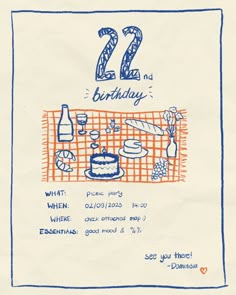 22nd
birthday
WHAT: picnic party
WHEN: 02/03/2025 14:00
WHERE: check attached map :)
ESSENTIALS: good mood &
see you there!